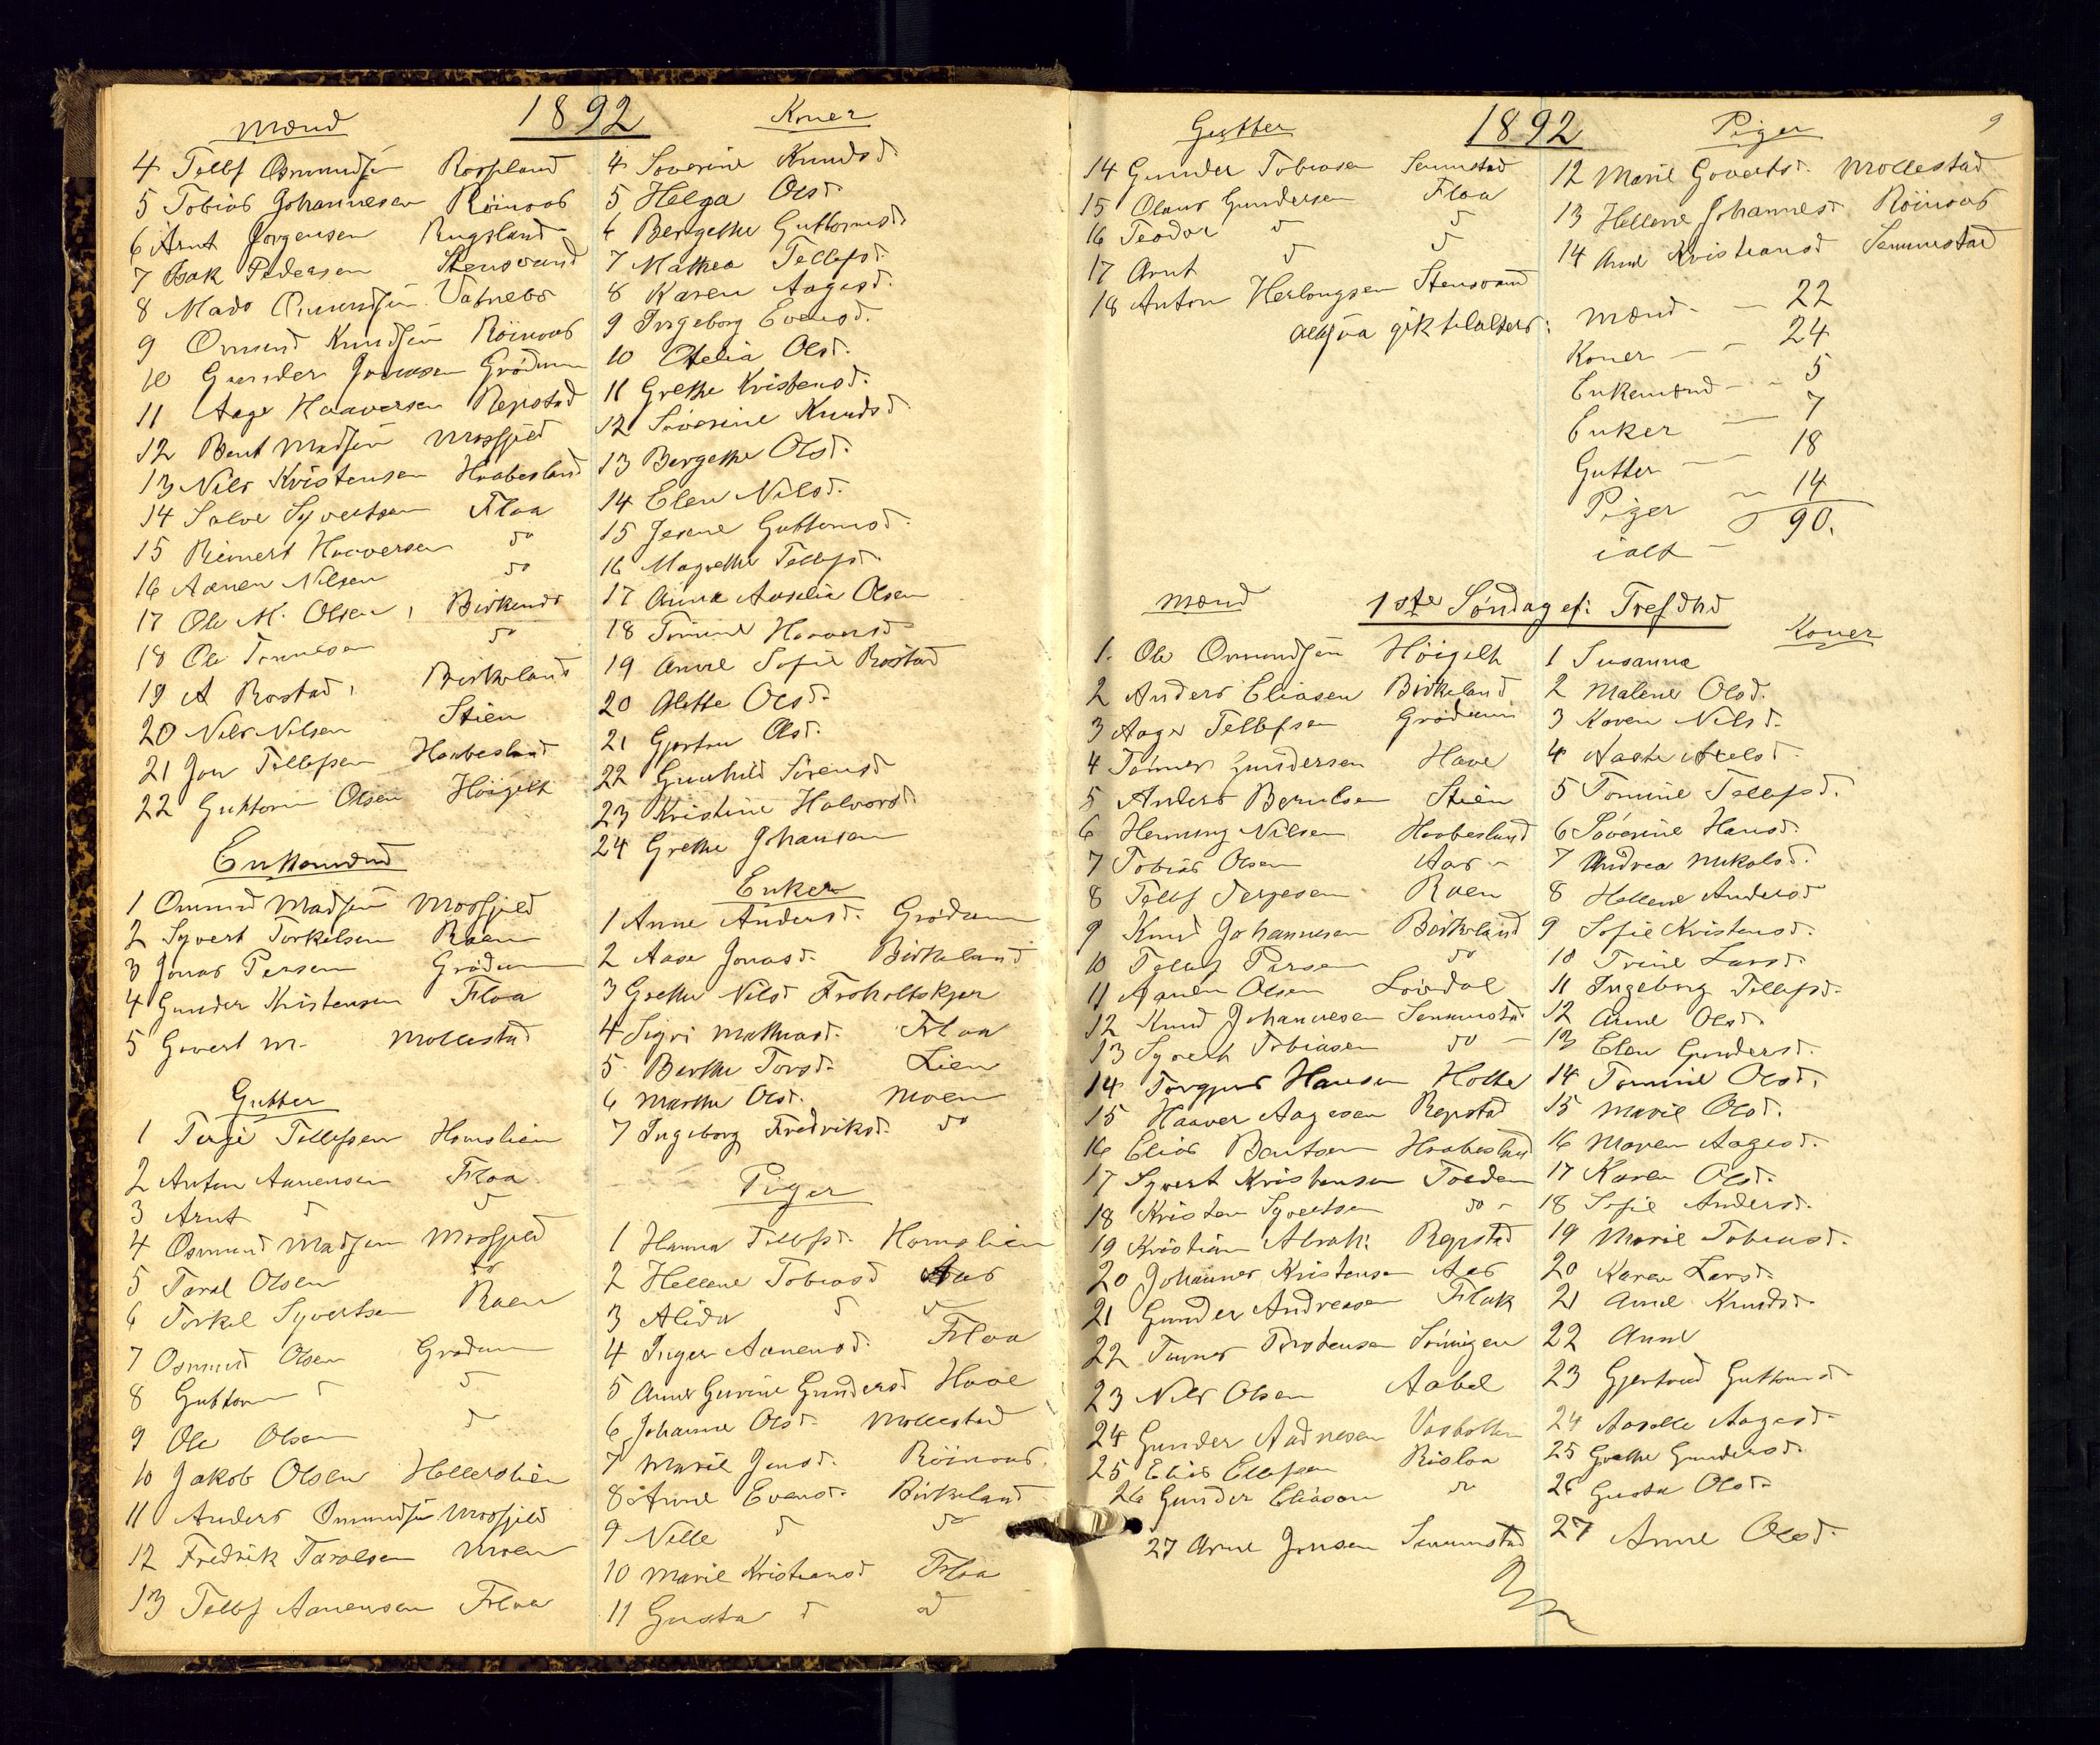 1892
Mænd
4 Tellef Osmundsen Rosseland
5 Tobias Johannesen Röinaas
6 Arnt Jørgensen Rugsland
7 Isak Pedersen Stensvand
8 Mads Osmundsen Vatnebø
9 Osmund Knudsen Röinaas
10 Gunder Jonassen Grødum
11 Aage Haaversen Repstad
12 Bent Madsen Mosfjeld
13 Nils Kristensen Haabesland
14 Salve Syvertsen Flaa
15 Reinert Haaversen do
16 Aanen Nilsen do
17 Ole M. Olsen, Birkenes
18 Ole Tønnesen do
19 A Rostad, Birkeland
20 Nils Nilsen Stien
21 Jon Tellefsen Haabesland
22 Guttorm Olsen Höigilt
Enkemænd
1 Osmund Madsen Mosfjeld
2 Syvert Torkelsen Raen
3 Jonas Persen Grødum
4 Gunder Kristensen Flaa
5 Govert M. Mollestad
Gutter
1 Terje Tellefsen Homslien
2 Anton Aanensen Flaa
3 Arnt d d
4 Osmund Madsen Mosfjeld
5 Tarald Olsen do
6 Torkel Syvertsen Raen
7 Osmund Olsen Grødum
8 Guttorm d d
9 Ole Olsen d
10 Jakob Olsen Hellerslien
11 Anders Osmundsen Mosfjeld
12 Fredrik Taralsen Moen
13 Tellef Aanensen Flaa
Koner
4 Severine Knudsd.
5 Helga Olsd.
6 Bergethe Guttormsd
7 Mathea Tellefsd.
8 Karen Aagesd.
9 Ingeborg Evensd.
10 Otelia Olsd.
11 Grethe Kristensd.
12 Søverine Knudsd
13 Bergethe Olsd.
14 Elen Nilsd.
15 Jesine Guttormsd.
16 Magrethe Tellefsd.
17 Anna Aaselia Olsen
18 Tomine Haaversd
19 Anne Sofie Rostad
20 Alette Olsd.
21 Gjertru Olsd.
22 Gunhild Sørensd
23 Kristine Halvorsd.
24 Grethe Johansen
Enker
1 Anne Andersd. Grødum
2 Aase Jonasd. Birkeland
3 Grethe Nilsd Froholtskjer
4 Sigri Mathiasd. Flaa
5 Berthe Torsd. Lien
6 Marthe Olsd. Moen
7 Ingeborg Fredriksd. do
Piger
1 Hanna Tellefsd. Homslien
2 Hellene Tobiasd Aas
3 Alida d d
4 Inger Aanensd. Flaa
5 Anne Gurine Gundersd Have
6 Johanne Olsd. Mollestad
7 Marie Jensd. Röinaas
8 Anne Evensd. Birkeland
9 Nelle d do
10 Marie Kristiansd Flaa
11 Gusta d d
9
1892
Gutter
14 Gunder Tobiasen Senumstad
15 Olaus Gundersen Flaa
16 Teodor d d
17 Arnt d d
18 Anton Herlougsen Stensvand
gik til alters:
Piger
12 Marie Govertsd. Mollestad
13 Hellene Johannesd Röinaas
14 Ane Kristiansd Senumstad
Mænd - - 22
Koner - - 24
Enkemænd - - 5
Enker - 7
Gutter - - 18
Piger - 14
ialt - 90.
1ste Søndag ef: Trefdhd
Mænd
1. Ole Osmundsen Höigilt
2 Anders Eliasen Birkeland
3 Aage Tellefsen Grødum
4 Tønnes Gundersen Have
5 Anders Berntsen Stien
6 Henning Nilsen Haabesland
7 Tobias Olsen Aas -
8 Tellef Terjesen Raen
9 Knud Johannesen Birkeland
10 Tellef Persen do
11 Aanen Olsen Løvdal
12 Knud Johannesen Senumstad
13 Syvert Tobiasen do -
14 Torgjus Hansen Holte
15 Haaver Aagesen Repstad
16 Elias Bentsen Haabesland
17 Syvert Kristensen Toeden
18 Kristen Syvertsen do -
19 Kristian Abrah: Repstad
20 Johannes Kristensen Aas
21 Gunder Andreasen Flak
22 Tønnes Torstensen
23 Nils Olsen Aabel
24 Gunder Aadnesen
25 Elias Ellefsen Risløa
26 Gunder Eliason do
27 Arne Jensen Senumstad
Koner
1 Susanna
2 Malene Olsd.
3 Karen Nilsd.
4 Aaste Axelsd.
5 Tomine Tellefsd.
6 Søverine Hansd.
7 Andrea Nikolsd.
8 Hellene Andersd
9 Sofie Kristensd.
10 Trine Larsd.
11 Ingeborg Tellefsd.
12 Anne Olsd.
13 Elen Gundersd.
14 Tomine Olsd.
15 Marie Olsd.
16 Maren Aagesd.
17 Karen Olsd.
18 Sofie Andersd.
19 Marie Tobiasd.
20 Karen Larsd.
21 Anne Knudsd.
22 Anne
23 Gjertrud Guttormsd
24 Aaselle Aagesd.
25 Grethe Gundersd.
26 Gusta Olsd.
27 Anne Olsd.